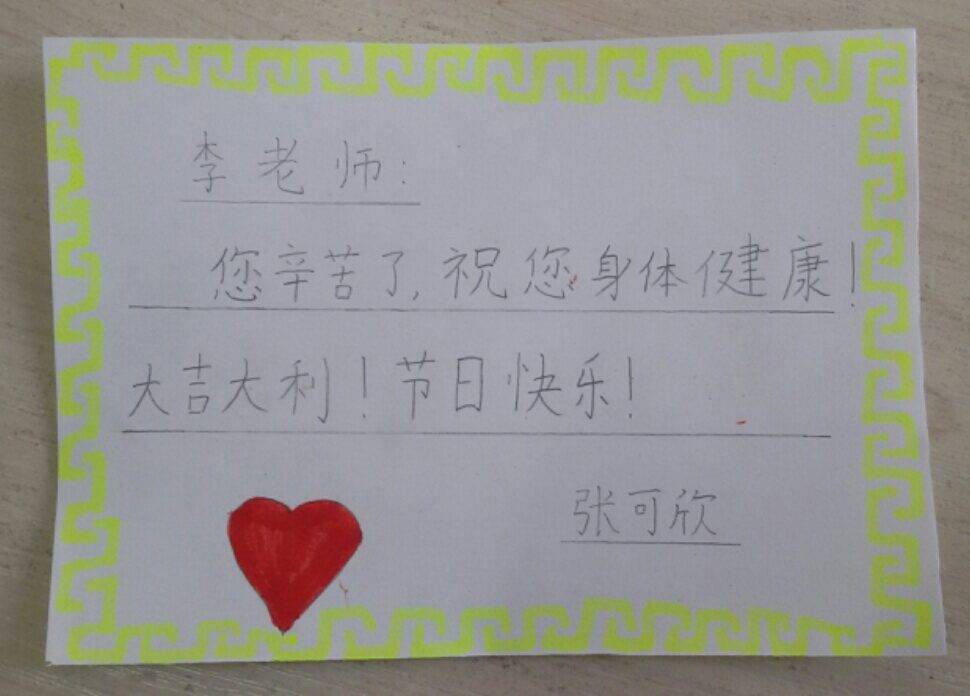 李老师:
您辛苦了,祝您身体健康!
大吉大利!节日快乐!
张可欣